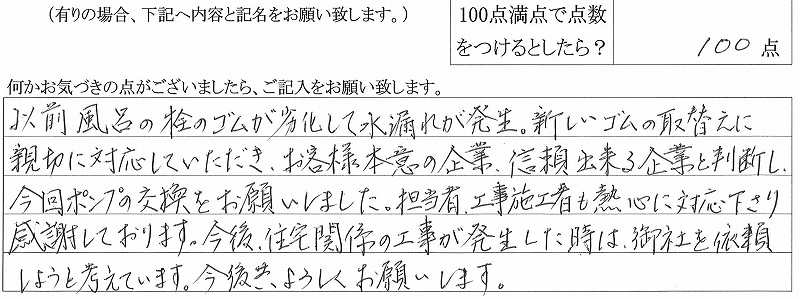 （有りの場合、下記へ内容と記名をお願い致します。）
100点満点で点数
をつけるとしたら？
100 点
何かお気づきの点がございましたら、ご記入をお願い致します。
以前風呂の栓のゴムが劣化して水漏れが発生。新しいゴムの取替えに
親切に対応していただき、お客様本意の企業、信頼出来る企業と判断し、
今回ポンプの交換をお願いしました。担当者、工事施工者も熱心に対応下さり
感謝しております。今後、住宅関係の工事が発生した時は、御社を依頼
しようと考えています。今後共、よろしくお願いします。